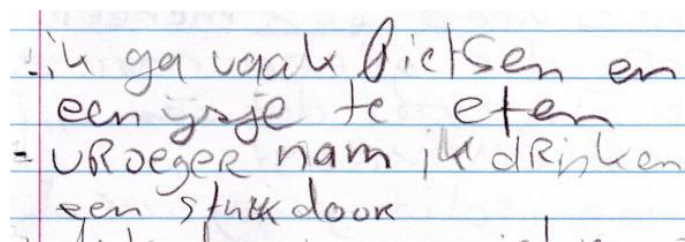 - ik ga vaak fietsen en
een ijsje te eten
- vroeger nam ik drinken
een stuk door